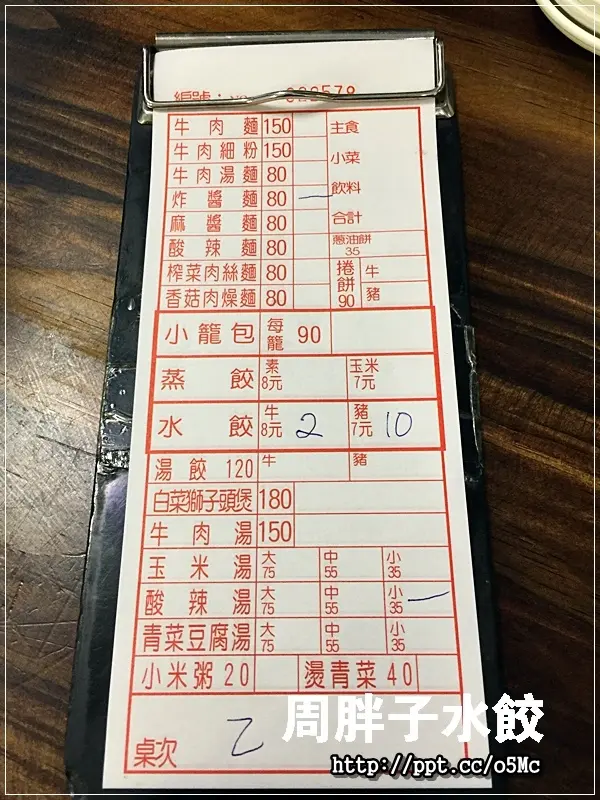 編號：No 022578
牛肉麵 150 主食
牛肉細粉 150 小菜
牛肉湯麵 80
炸醬麵 80 一 飲料
麻醬麵 80 合計
酸辣麵 80 蔥油餅 35
榨菜肉絲麵 80 捲餅 90 牛
香菇肉燥麵 80 豬
小籠包 每籠 90
蒸餃 素 8元 玉米 7元
水餃 牛 8元 2 豬 7元 10
湯餃 120 牛 豬
白菜獅子頭煲 180
牛肉湯 150
玉米湯 大 75 中 55 小 35
酸辣湯 大 75 中 55 小 35 一
青菜豆腐湯 大 75 中 55 小 35
小米粥 20 燙青菜 40
桌次 乙
周胖子水餃
http://ppt.cc/o5Mc